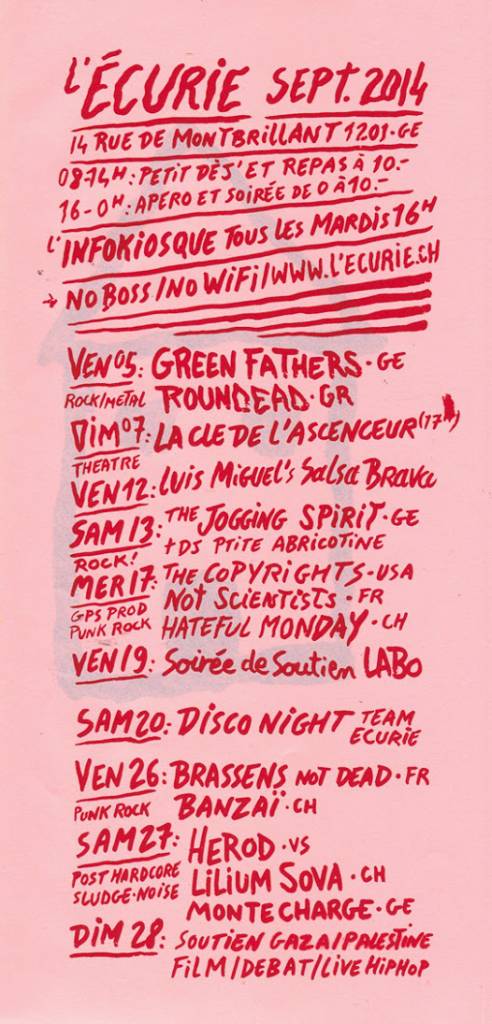 L'ÉCURIE SEPT. 2014
14 RUE DE MONTBRILLANT 1201·GE
08-14H: PETIT DÈJ' ET REPAS À 10.-
16-0H: APÉRO ET SOIRÉE DE 0 À 10.-
L'INFOKIOSQUE TOUS LES MARDIS 16H
→ NO BOSS/NO WIFI/WWW.L'ECURIE.CH
VEN 05: GREEN FATHERS·GE
ROCK/METAL ROUNDEAD·GR
DIM 07: LA CLE DE L'ASCENCEUR (17H)
THEATRE
VEN 12: LUIS MIGUEL'S SALSA BRAVA
SAM 13: THE JOGGING SPIRIT·GE
+DJ PTITE ABRICOTINE
ROCK!
MER 17: THE COPYRIGHTS·USA
GPS PROD NOT SCIENTISTS·FR
PUNK ROCK HATEFUL MONDAY·CH
VEN 19: Soirée de Soutien LABO
SAM 20: DISCO NIGHT TEAM
ECURIE
VEN 26: BRASSENS NOT DEAD·FR
PUNK ROCK BANZAÏ·CH
SAM 27: HEROD·VS
POST HARDCORE LILIUM SOVA·CH
SLUDGE-NOISE MONTECHARGE·GE
DIM 28: SOUTIEN GAZA/PALESTINE
FILM/DEBAT/LIVE HIPHOP